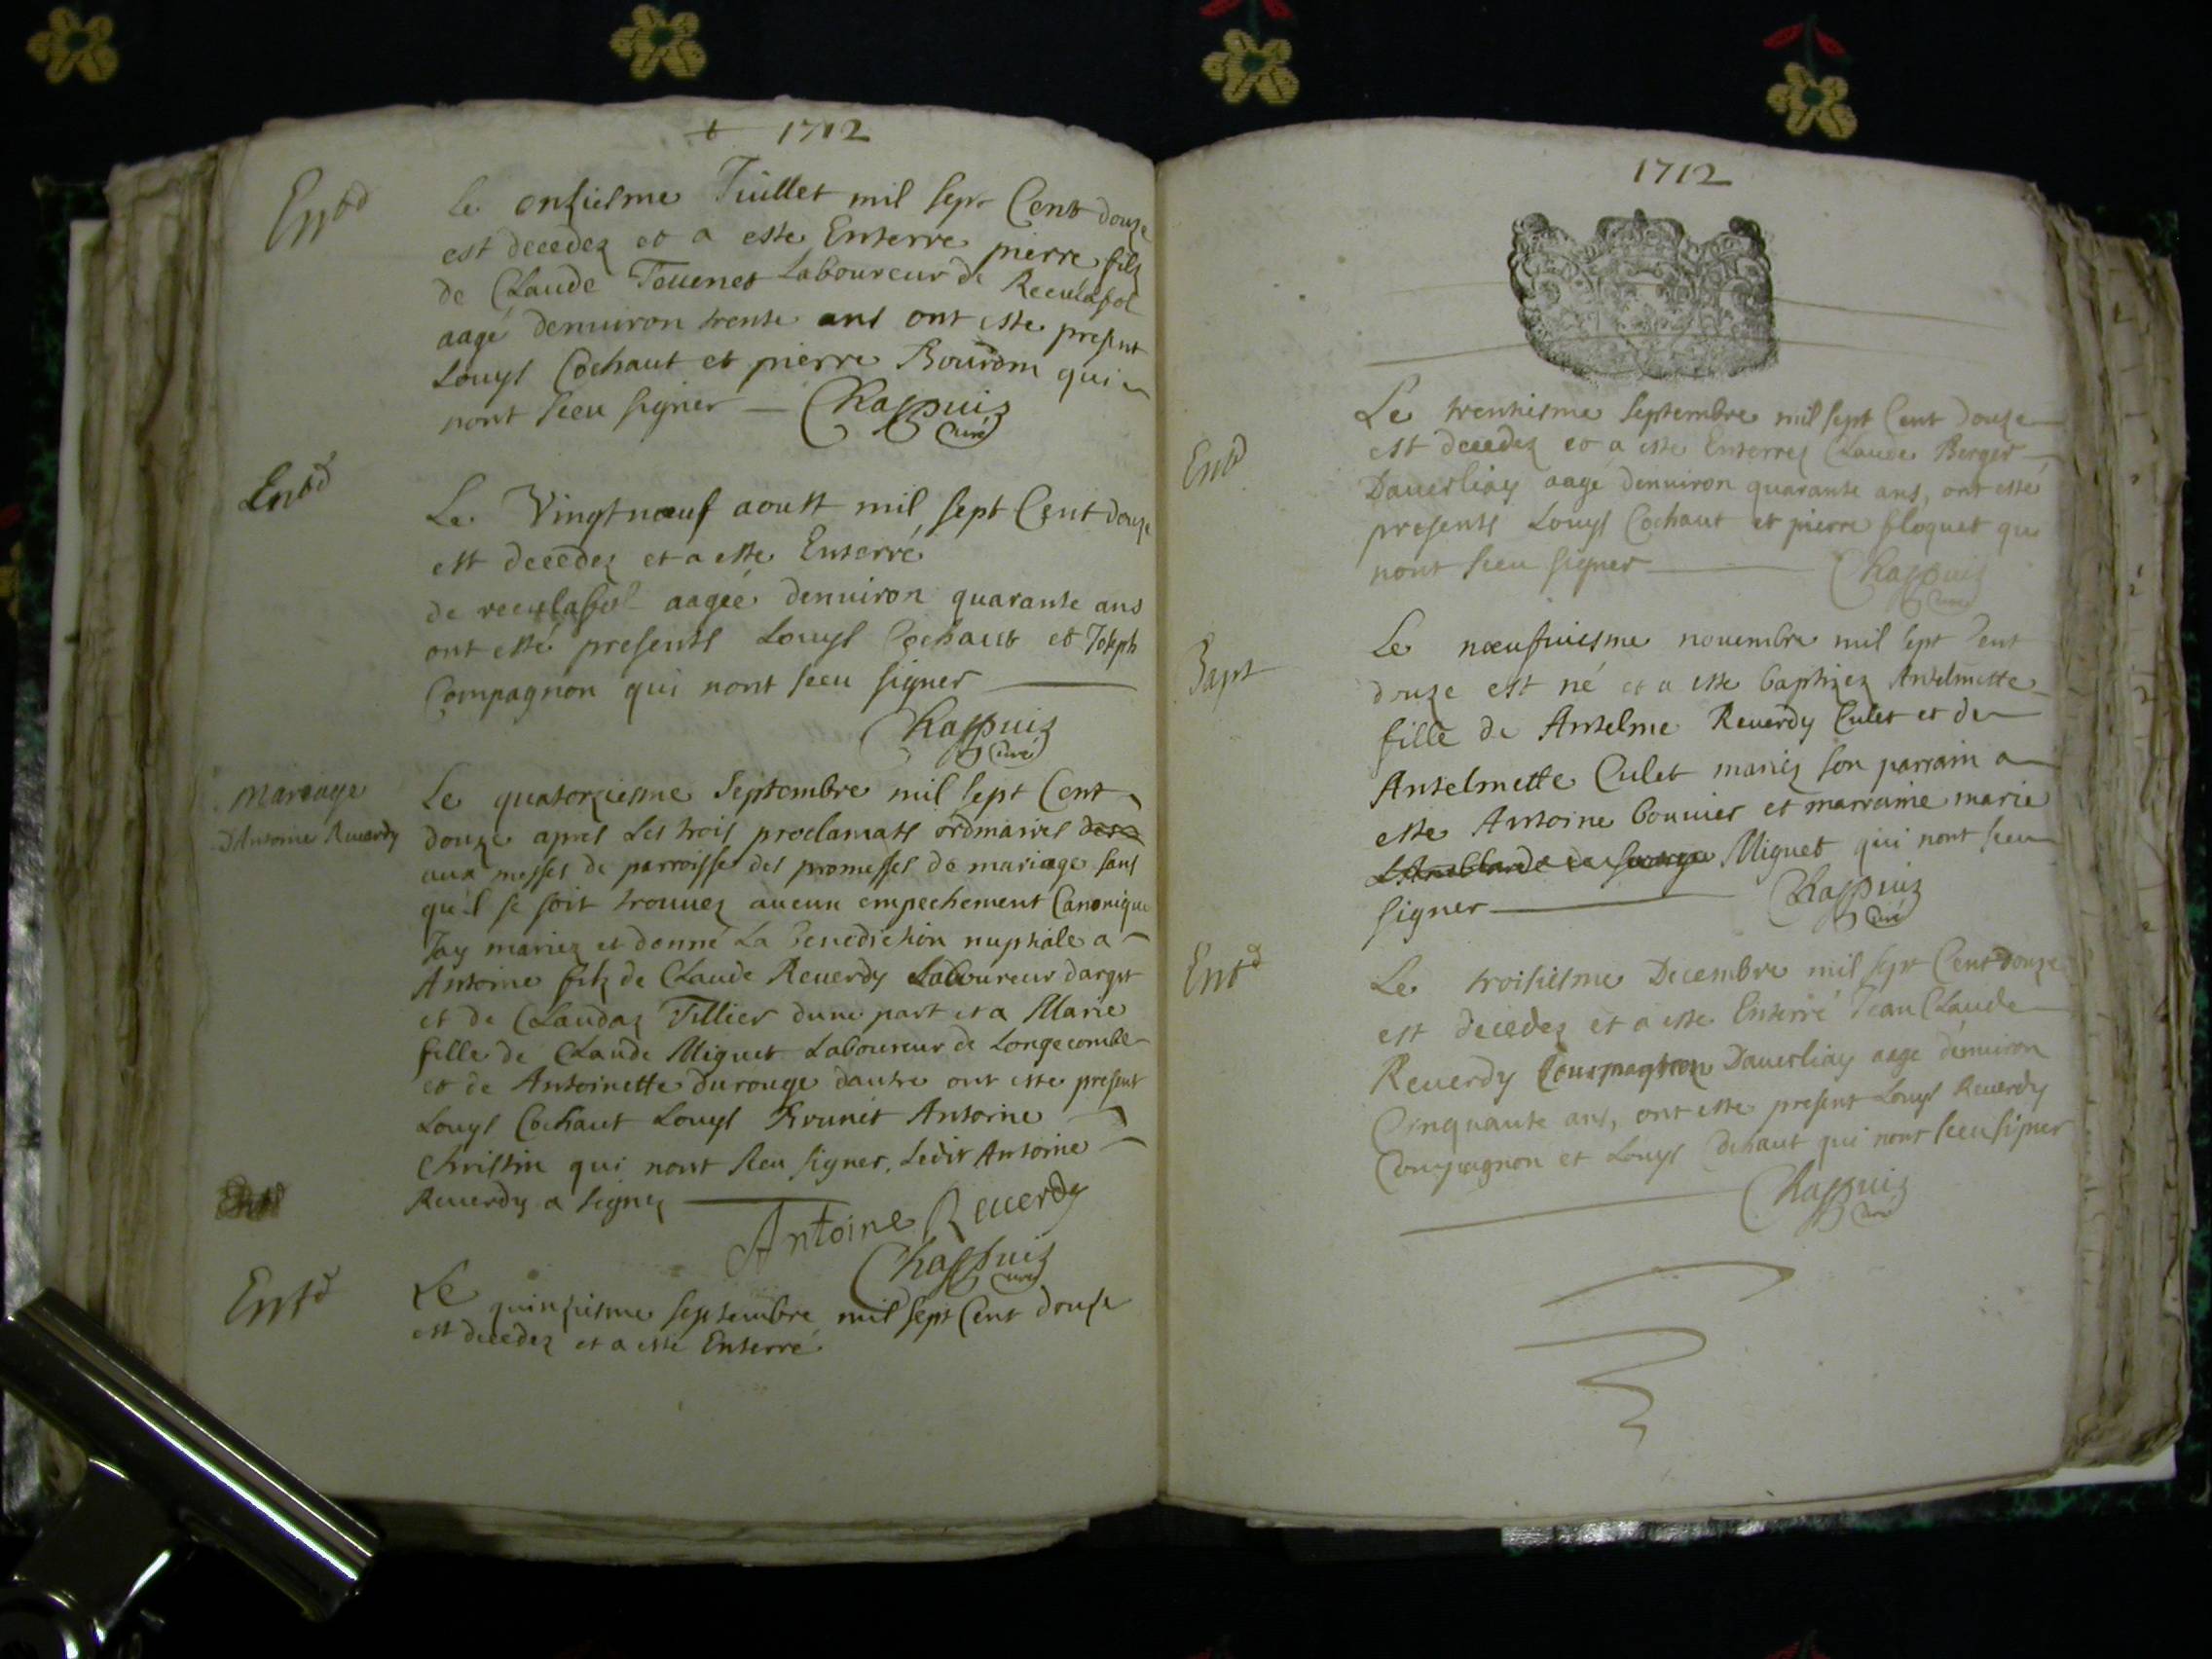 + 1712
Entd
Le onziesme Juillet mil sept Cent douze
est decedez et a este Enterre pierre filz
de Claude Teuenet Laboureur de Reculafol
aagé denuiron trente ans ont este present
Louys Cochaut et pierre Bourdin qui
nont sceu signer — Chappuis
Curé
Entd
Le Vingt nœuf aoust mil sept Cent douze
est decedez et a este Enterré
de reculafol aagéé denuiron quarante ans
ont esté presents Louys Cochaut et Joseph
Compagnon qui nont sceu signer —
Chappuis
Curé
Mariage
D'Antoine Reuerdy
Le quatorziesme Septembre mil sept Cent
douze apres Les trois proclamats ordinaires
aux messes de parroisse des promesses de mariage sans
qu'il se soit trouuez aucun empechement Canonique
Jay mariez et donné La benediction nuptiale a
Antoine filz de Claude Reuerdy Laboureur dargit
et de Claudaz Tillier dune part et a Marie
fille de Claude Miguet Laboureur de Longecombe
et de Antoinette durouge dautre ont este present
Louys Cochaut Louys Brunet Antoine
Christin qui nont sceu signer, Ledit Antoine
Reuerdy a signez —
Antoine Reuerdy
Chappuis
Curé
Entd
Le quinziesme septembre mil sept Cent douze
est decedez et a este Enterré
1712
Entd
Le trentiesme septembre mil sept Cent douze
est decedez et a este Enterrez Claude Berger
Dauerliay aagé denuiron quarante ans, ont esté
presents Louys Cochaut et pierre floquet qui
nont sceu signer — Chappuis
Curé
Bapt
Le nœufuiesme nouembre mil sept Cent
douze est né et a este baptizez Antelmette
fille de Antelme Reuerdy Culet et de
Antelmette Culet mariez son parrain a
este Antoine bouuier et marraine marie
Miguet qui nont sceu
signer — Chappuis
Curé
Entd
Le troisiesme Decembre mil sept Cent douze
est decedez et a este Enterré Jean Claude
Reuerdy Compagnon Dauerliay aagé denuiron
Cinquante ans, ont este present Louys Reuerdy
Compagnon et Louys Cochaut qui nont sceu signer
Chappuis
Curé